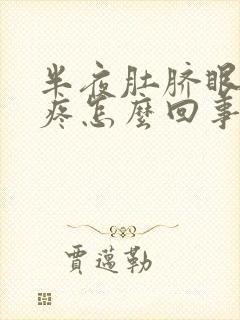 半夜肚脐眼
疼怎麼回事
贾邁勒